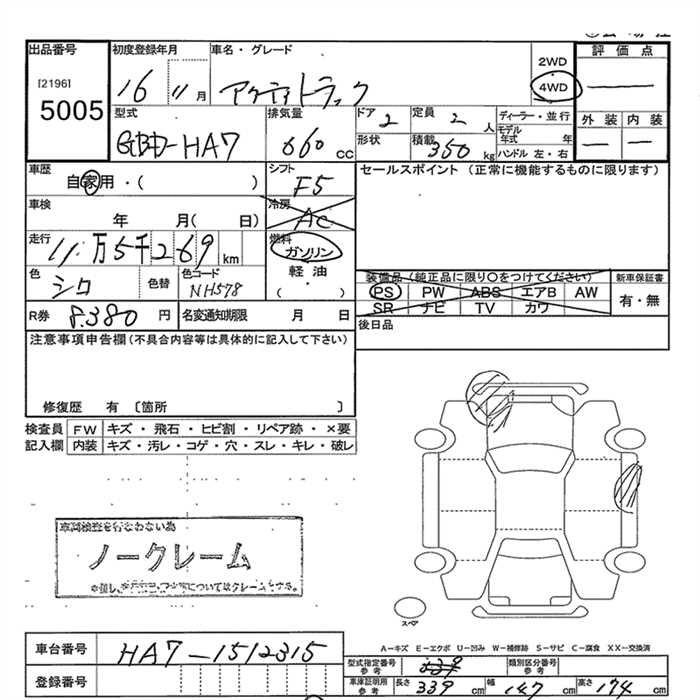 出品番号 初度登録年月 車名・グレード 評価点
[2196] 5005
16 11月 アクティトラック 2WD 4WD
型式 排気量 ドア 定員 ディーラー・並行 外装 内装
GBD-HA7 660 cc 2 2 人 モデル年式 年
形状 積載 350 kg ハンドル 左・右
車歴 シフト セールスポイント (正常に機能するものに限ります)
自家用・( ) F5
車検 年 月( 日) 冷房 AC
走行 11万5千269 km 燃料 ガソリン
軽油
( )
色 シロ 色替 色コード NH578
装備品(純正品に限り○をつけてください) 新車保証書
PS PW ABS エアB AW 有・無
SR ナビ TV カワ
R券 8.380 円 名変通知期限 月 日 後日品
注意事項申告欄(不具合内容等は具体的に記入して下さい)
修復歴 有 〔箇所 〕
検査員 FW キズ・飛石・ヒビ割・リペア跡・×要
記入欄 内装 キズ・汚レ・コゲ・穴・スレ・キレ・破レ
車両検査を行なわない為
ノークレーム
スペア
A-キズ E-エクボ U-凹み W-補修跡 S-サビ C-腐食 XX-交換済
車台番号 HA7-1512315
型式指定番号 参考 類別区分番号 参考
登録番号
車庫証明用 参考 長さ 339 cm 幅 147 cm 高さ 174 cm